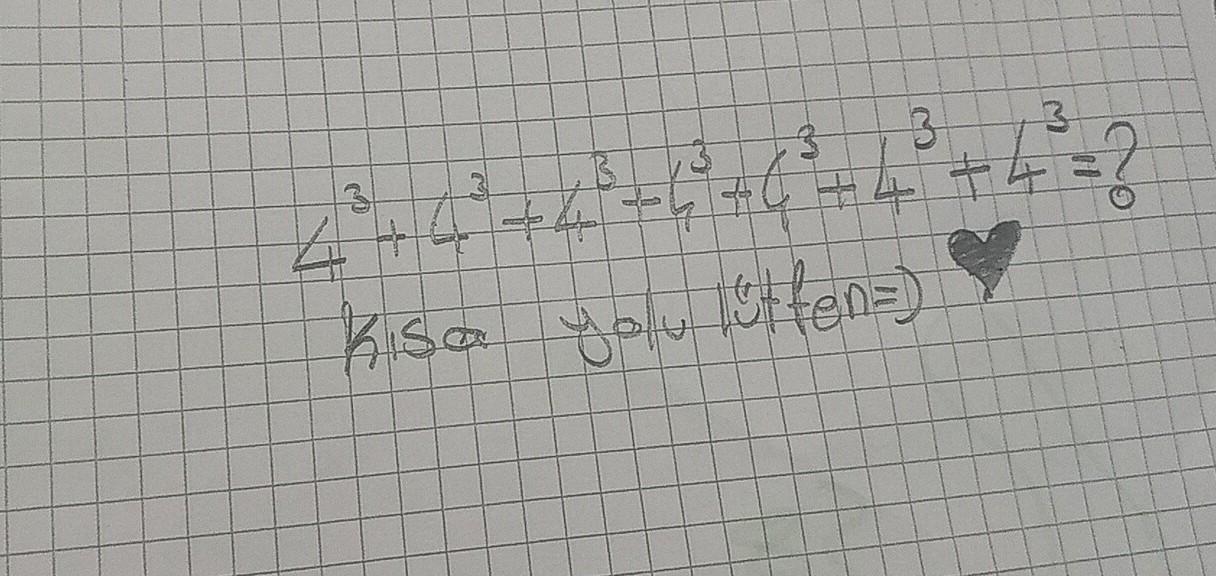 4³+4³+4³+4³+4³+4³+4³=?
Kısa yolu lütfen=) ♥